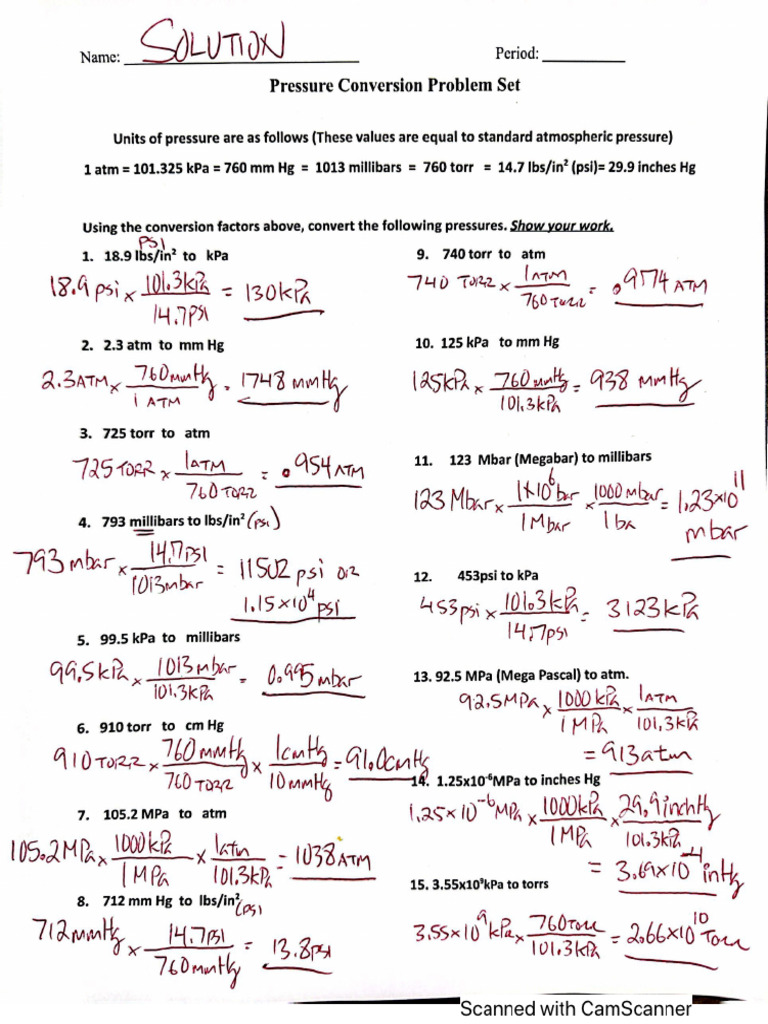 Name: SOLUTION Period:
Pressure Conversion Problem Set
Units of pressure are as follows (These values are equal to standard atmospheric pressure)
1 atm = 101.325 kPa = 760 mm Hg = 1013 millibars = 760 torr = 14.7 lbs/in² (psi)= 29.9 inches Hg
Using the conversion factors above, convert the following pressures. Show your work.
PSI
1. 18.9 lbs/in² to kPa
18.9 psi × 101.3kPa / 14.7PSI = 130kPa
2. 2.3 atm to mm Hg
2.3ATM × 760mmHg / 1 ATM = 1748 mmHg
3. 725 torr to atm
725 TORR × 1ATM / 760 TORR = .954 ATM
4. 793 millibars to lbs/in² (psi)
793 mbar × 14.7PSI / 1013mbar = 11502 psi OR
1.15×10⁴ psi
5. 99.5 kPa to millibars
99.5kPa × 1013mbar / 101.3kPa = 0.995mbar
6. 910 torr to cm Hg
910 TORR × 760mmHg / 760 TORR × 1cmHg / 10mmHg = 91.0cmHg
7. 105.2 MPa to atm
105.2MPa × 1000kPa / 1MPa × 1atm / 101.3kPa = 1038 ATM
8. 712 mm Hg to lbs/in² (psi)
712mmHg × 14.7PSI / 760mmHg = 13.8psi
9. 740 torr to atm
740 TORR × 1ATM / 760TORR = .9774 ATM
10. 125 kPa to mm Hg
125kPa × 760mmHg / 101.3kPa = 938 mmHg
11. 123 Mbar (Megabar) to millibars
123 Mbar × 1×10⁶ bar / 1Mbar × 1000mbar / 1ba = 1.23×10¹¹
mbar
12. 453psi to kPa
453psi × 101.3kPa / 14.7psi = 3123kPa
13. 92.5 MPa (Mega Pascal) to atm.
92.5MPa × 1000kPa / 1MPa × 1ATM / 101.3kPa
= 913atm
14. 1.25x10⁻⁶MPa to inches Hg
1.25×10⁻⁶MPa × 1000kPa / 1MPa × 29.9inchHg / 101.3kPa
= 3.69×10⁻⁴ inHg
15. 3.55x10⁹kPa to torrs
3.55×10⁹kPa × 760Torr / 101.3kPa = 2.66×10¹⁰ Torr
Scanned with CamScanner